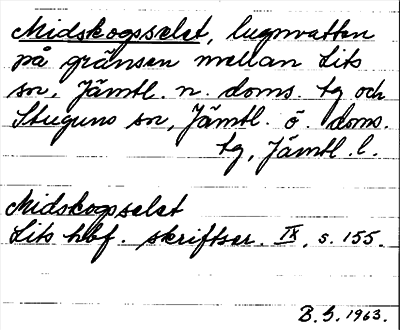 Midskogsselet, lugnvatten
på gränsen mellan Lits
sn, Jämtl. n. doms. tg och
Stuguns sn, Jämtl. ö. doms.
tg, Jämtl. l.
Midskogsselet
Lits hbf. skriftser. IX, s. 155.
B.G. 1963.